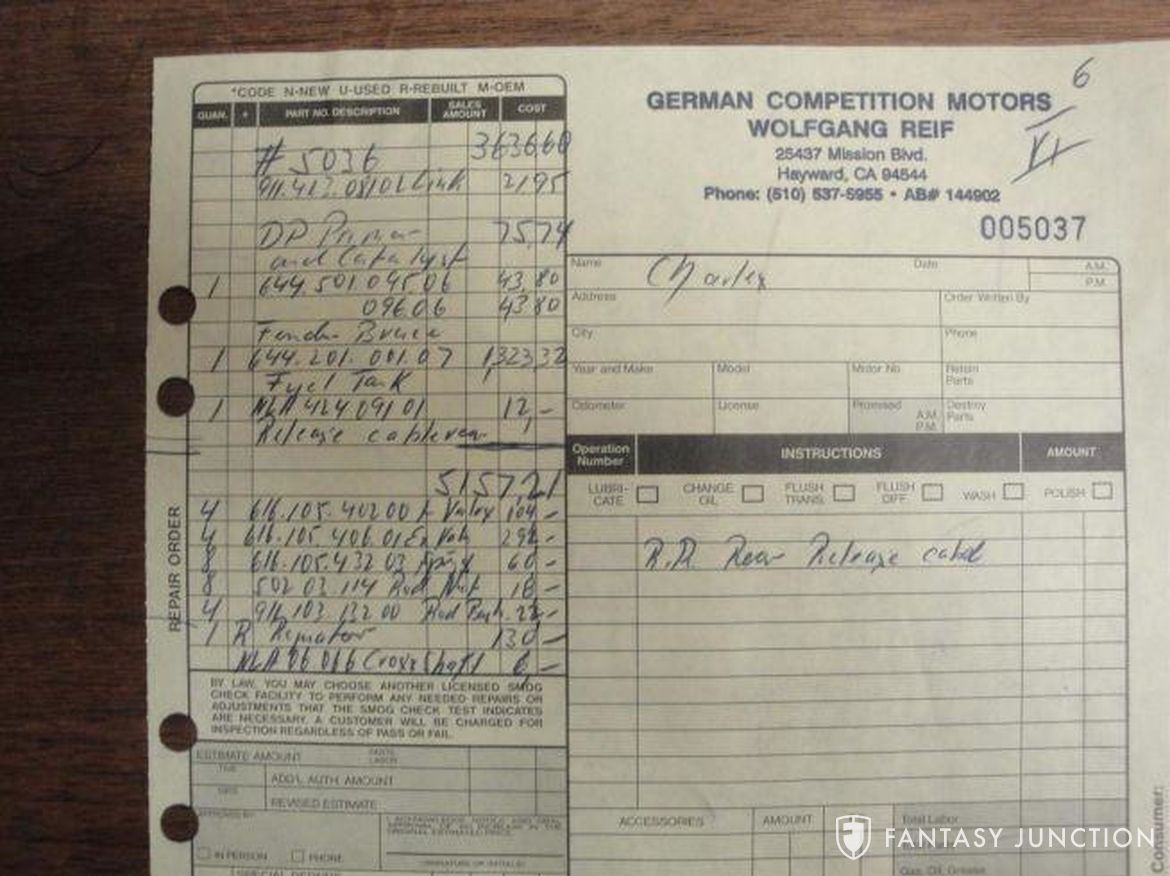 *CODE N-NEW U-USED R-REBUILT M-OEM
QUAN. * PART NO. DESCRIPTION SALES AMOUNT COST
# 5036 3636,60
911.423.081.01 Link 21,95
DP Primer 75,74
and Catalyst
1 644.501.045.06 43,80
096.06 43,80
Fender Brace
1 644.201.001.07 1,323,32
Fuel Tank
1 NLA 424.091.01 12,-
Release cable rear
5157,21
4 616.105.402.00 104-
4 616.105.406.01 Ex Valv
8 616.105.432.03 Spring 60-
8 502 03.114 Rod Nut 18-
4 916.103.132.00 Rod Bush. 22-
1 R 130-
NLA 06 016 Cross Shaft 6,-
BY LAW, YOU MAY CHOOSE ANOTHER LICENSED SMOG
CHECK FACILITY TO PERFORM ANY NEEDED REPAIRS OR
ADJUSTMENTS THAT THE SMOG CHECK TEST INDICATES
ARE NECESSARY. A CUSTOMER WILL BE CHARGED FOR
INSPECTION REGARDLESS OF PASS OR FAIL.
ESTIMATE AMOUNT PARTS LABOR
TIME
ADD'L AUTH. AMOUNT
DATE
REVISED ESTIMATE
APPROVED BY
I ACKNOWLEDGE NOTICE AND ORAL
APPROVAL OF AN INCREASE IN THE
ORIGINAL ESTIMATED PRICE.
IN PERSON PHONE
(SIGNATURE OR INITIALS)
REPAIR ORDER
6
VI
GERMAN COMPETITION MOTORS
WOLFGANG REIF
25437 Mission Blvd.
Hayward, CA 94544
Phone: (510) 537-5955 • AB# 144902
005037
Name Charley Date A.M.
P.M.
Address Order Written By
City Phone
Year and Make Model Motor No. Retain Parts
Odometer License Promised A.M. P.M. Destroy Parts
Operation Number INSTRUCTIONS AMOUNT
LUBRI-CATE CHANGE OIL FLUSH TRANS. FLUSH DIFF. WASH POLISH
R.R. Rear Release cabel
ACCESSORIES AMOUNT Total Labor
Gas, Oil, Grease
Consumer:
FANTASY JUNCTION